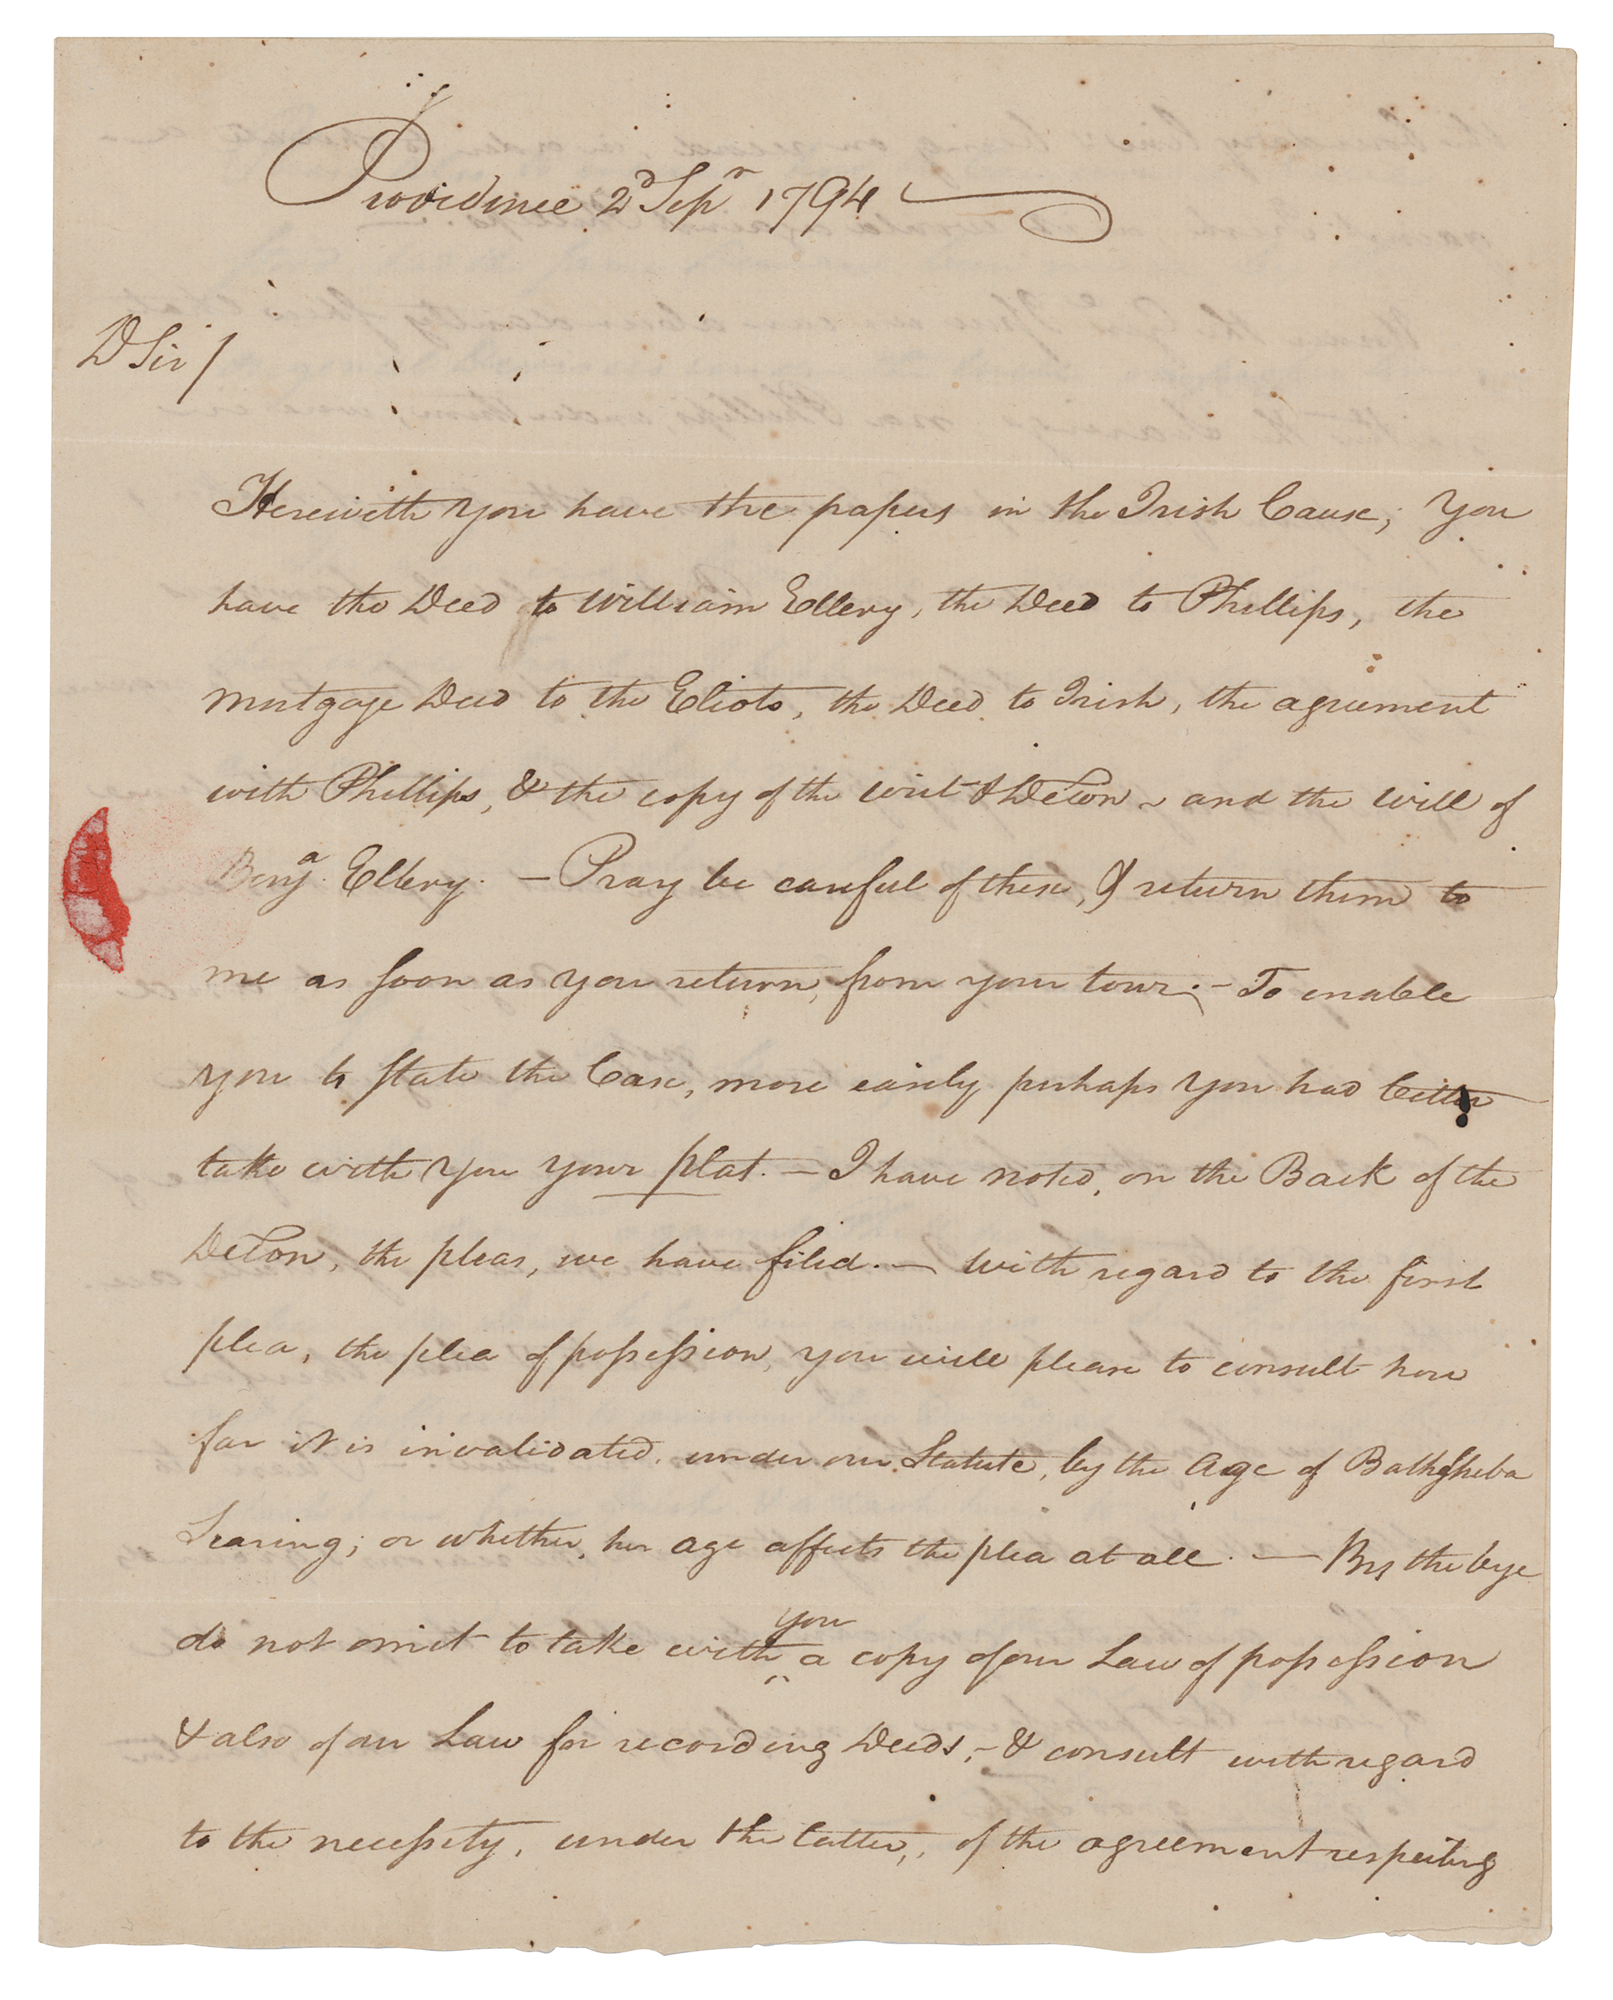 Providence 2d Sepr 1794
D Sir/
Herewith you have the papers in the Irish Cause; You
have the Deed to William Ellery, the Deed to Phillips, the
mortgage Deed to the Eliots, the Deed to Irish, the agreement
with Phillips, & the copy of the writ & Declon - and the will of
Benja. Ellery. — Pray be careful of these, & return them to
me as soon as you return, from your tour; - To enable
you to state the Case, more easily perhaps you had better
take with you your plat. — I have noted, on the Back of the
Declon, the pleas, we have filed. — With regard to the first
plea, the plea of possession, you will please to consult how
far it is invalidated, under our Statute, by the age of Bathsheba
Searing; or whether, her age affects the plea at all. — By the bye
do not omit to take with you a copy of our Law of possession
& also of our Law for recording Deeds; - & consult with regard
to the necessity, under the latter, of the agreement respecting